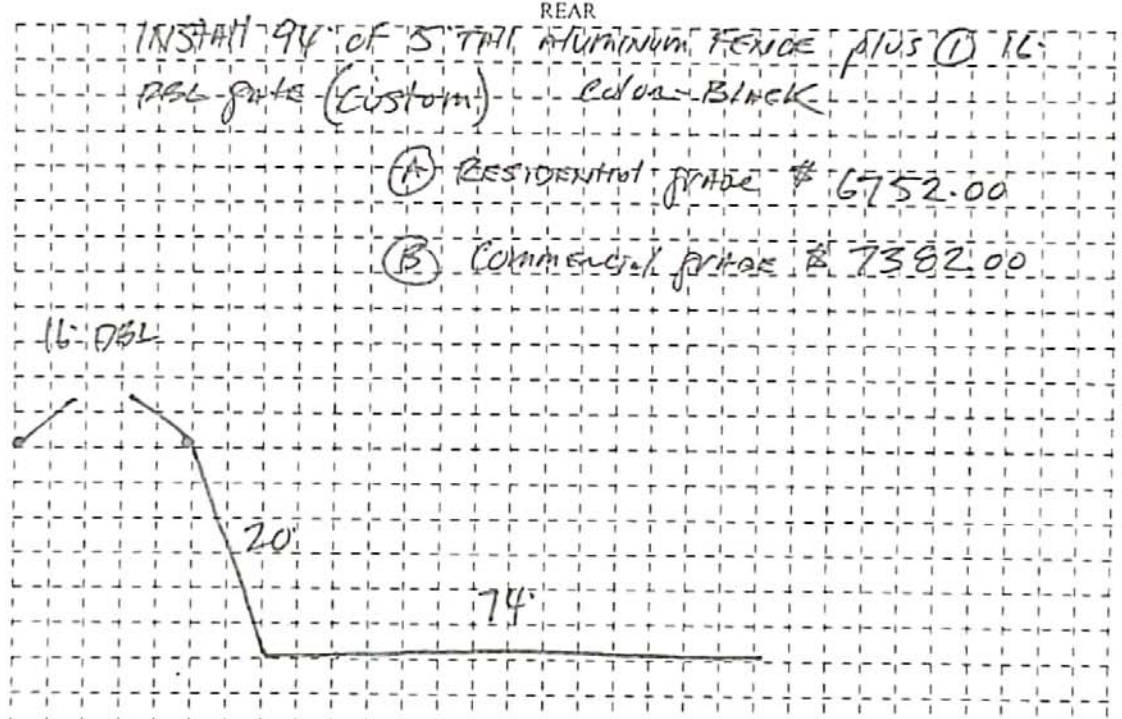 REAR
INSTAll 94' OF 5' TAll AluMINUM FENCE plus ① 16'
DBL gAte (Custom) Color-BlACK
Ⓐ RESIDENtIAl grADE $ 6752.00
Ⓑ CommERCiAl grADE $ 7382.00
16' DBL
20'
74'